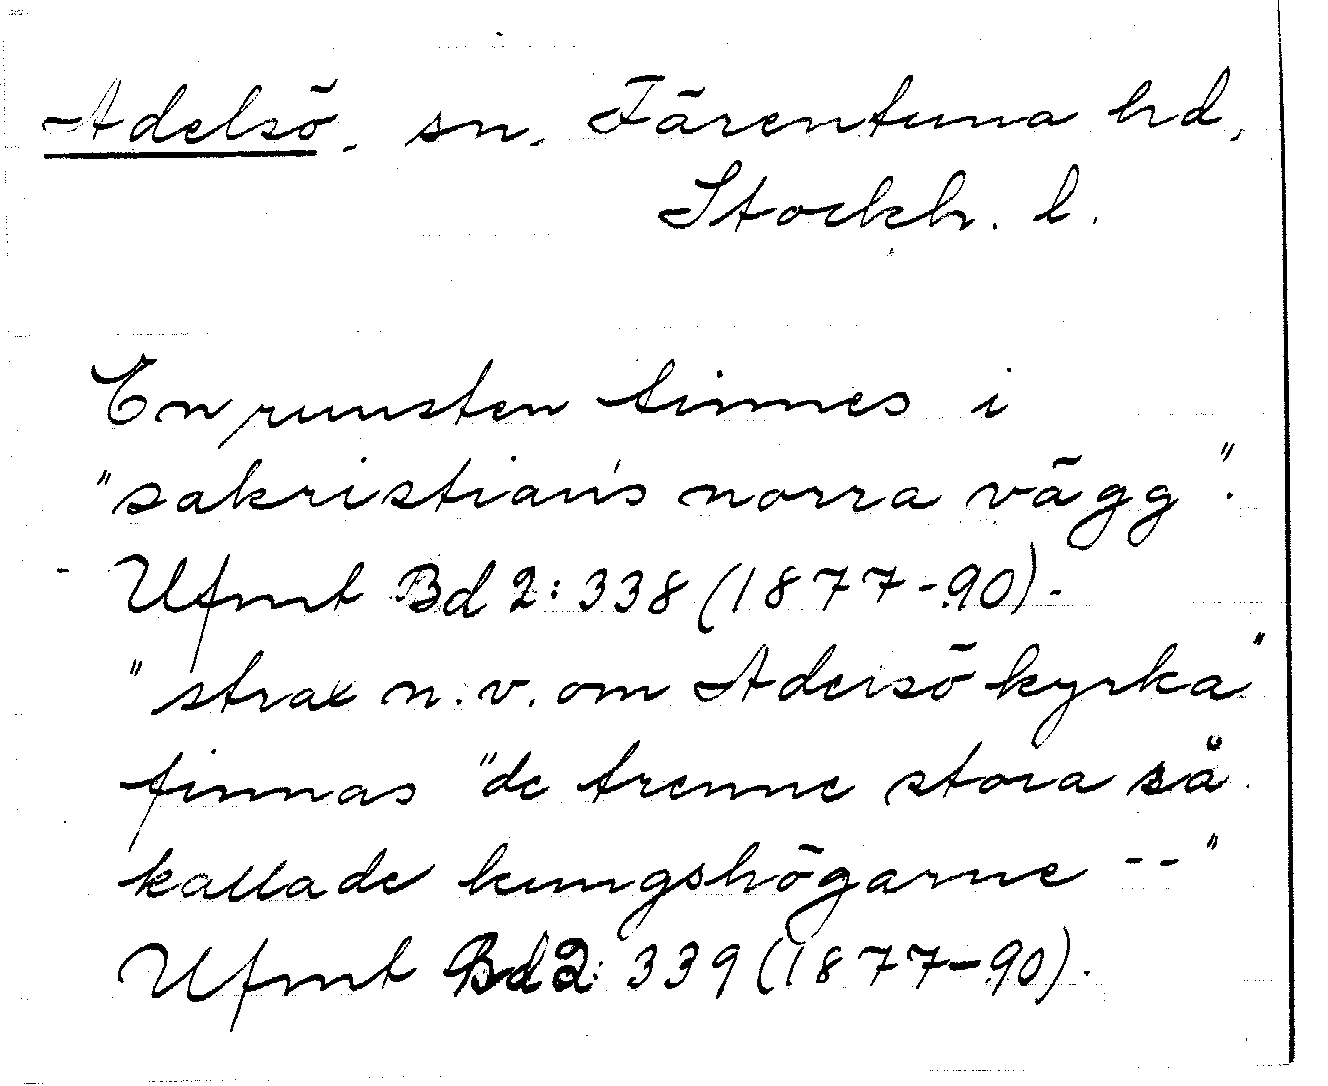 Adelsö. sn. Färentuna hd,
Stockh. l.
En runsten finnes i
"sakristians norra vägg".
Ufmt Bd 2: 338 (1877-90).
"strax n.v. om Adelsö kyrka"
finnas "de trenne stora så
kallade kungshögarne --"
Ufmt Bd 2: 339 (1877-90).